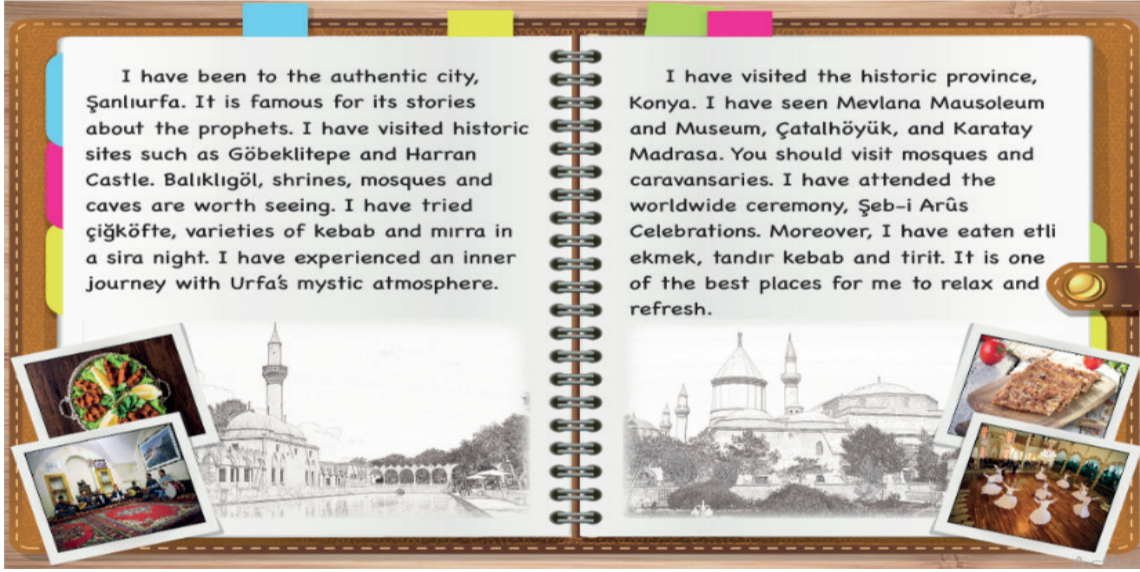 I have been to the authentic city,
Şanlıurfa. It is famous for its stories
about the prophets. I have visited historic
sites such as Göbeklitepe and Harran
Castle. Balıklıgöl, shrines, mosques and
caves are worth seeing. I have tried
çiğköfte, varieties of kebab and mırra in
a sira night. I have experienced an inner
journey with Urfa's mystic atmosphere.
I have visited the historic province,
Konya. I have seen Mevlana Mausoleum
and Museum, Çatalhöyük, and Karatay
Madrasa. You should visit mosques and
caravansaries. I have attended the
worldwide ceremony, Şeb-i Arûs
Celebrations. Moreover, I have eaten etli
ekmek, tandır kebab and tirit. It is one
of the best places for me to relax and
refresh.